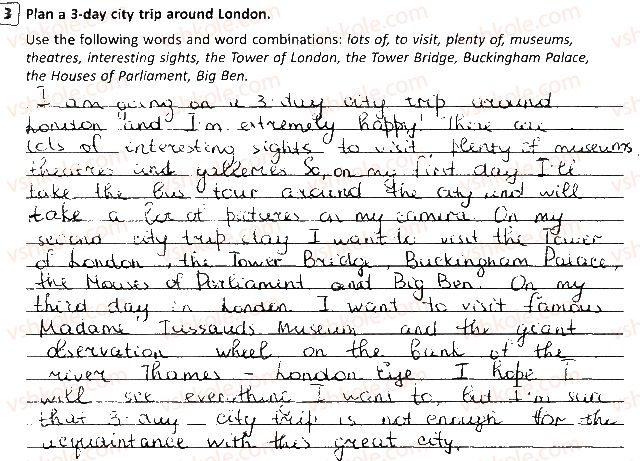 3 Plan a 3-day city trip around London.
Use the following words and word combinations: lots of, to visit, plenty of, museums,
theatres, interesting sights, the Tower of London, the Tower Bridge, Buckingham Palace,
the Houses of Parliament, Big Ben.
I am going on a 3-day city trip around
London and I'm extremely happy! There are
lots of interesting sights to visit, plenty of museums,
theatres and galleries. So, on my first day I'll
take the bus tour around the city and will
take a lot of pictures on my camera. On my
second city trip day I want to visit the Tower
of London, the Tower Bridge, Buckingham Palace,
the Houses of Parliament and Big Ben. On my
third day in London I want to visit famous
Madame Tussauds Museum and the giant
observation wheel on the bank of the
river Thames – London Eye. I hope I
will see everything I want to, but I'm sure
that 3-day city trip is not enough for the
acquaintance with this great city.